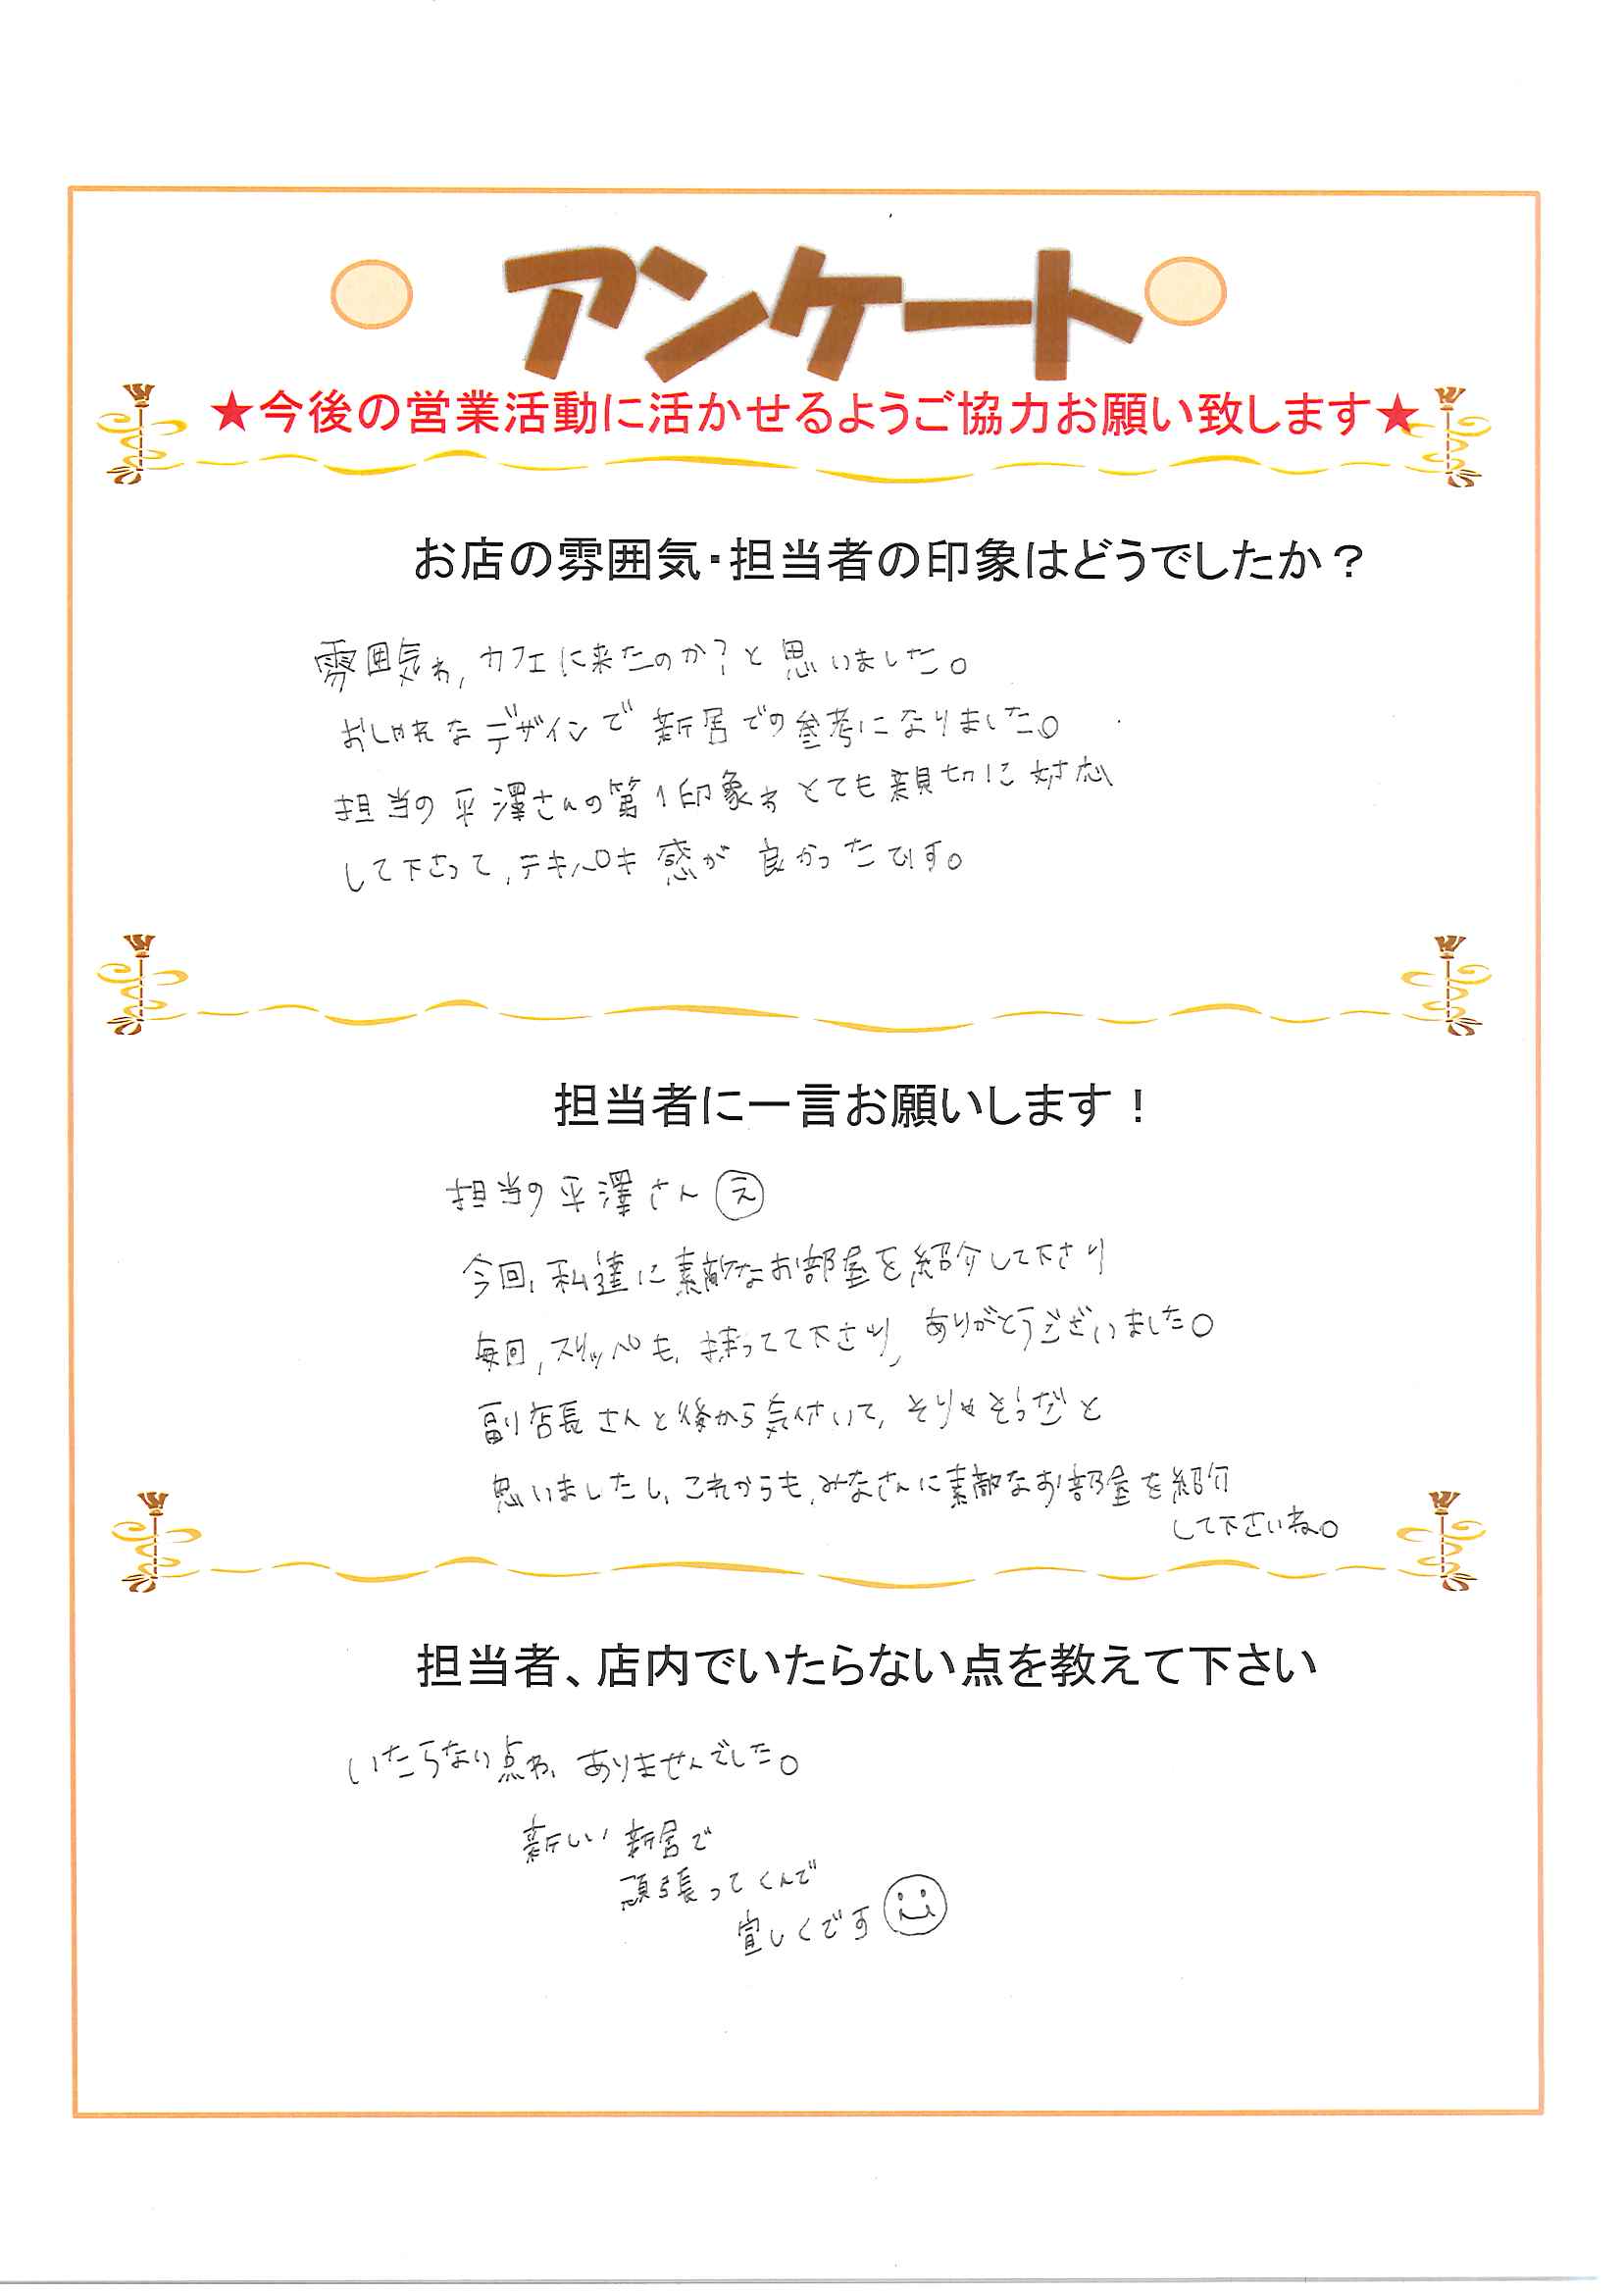 アンケート
★今後の営業活動に活かせるようご協力お願い致します★
お店の雰囲気・担当者の印象はどうでしたか？
雰囲気わ、カフェに来たのか?と思いました。
おしゃれなデザインで新居での参考になりました。
担当の平澤さんの第1印象わとても親切に対応
して下さって、テキパキ感が良かったです。
担当者に一言お願いします！
担当の平澤さん え
今回、私達に素敵なお部屋を紹介して下さり
毎回、スリッパも、持ってて下さり、ありがとうございました。
副店長さんと後から気付いて、そりゃそうだと
思いましたし、これからも、みなさんに素敵なお部屋を紹介
して下さいね。
担当者、店内でいたらない点を教えて下さい
いたらない点わ、ありませんでした。
新しい新居で
頑張ってくんで
宜しくです